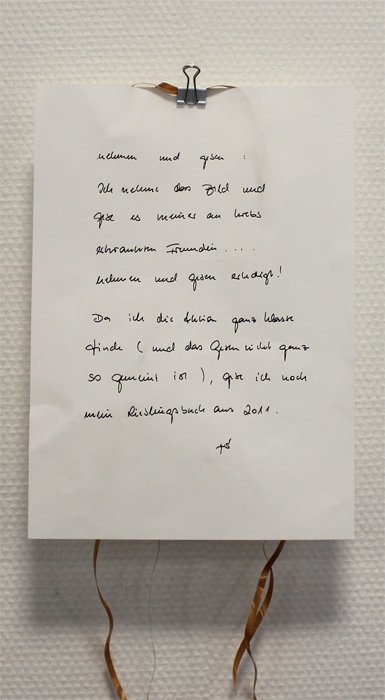 nehmen und geben :
Ich nehme das Bild und
gebe es meiner an Krebs
erkrankten Freundin....
nehmen und geben erledigt!
Da ich die Aktion ganz klasse
finde (und das Geben nicht ganz
so gemeint ist), gebe ich noch
mein Lieblingsbuch aus 2011.